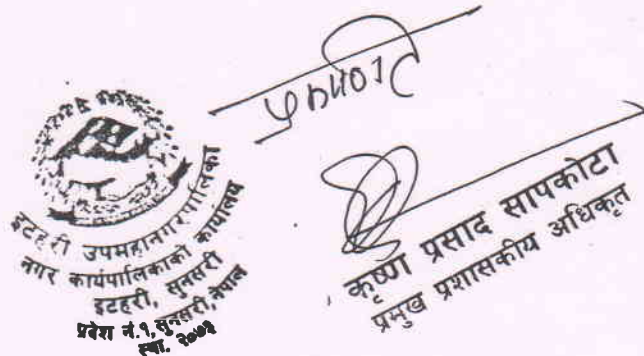 प्रमाणित
इटहरी उपमहानगरपालिका
नगर कार्यपालिकाको कार्यालय
इटहरी, सुनसरी
प्रदेश नं.१, सुनसरी, नेपाल
स्था. २०७३
कृष्ण प्रसाद सापकोटा
प्रमुख प्रशासकीय अधिकृत